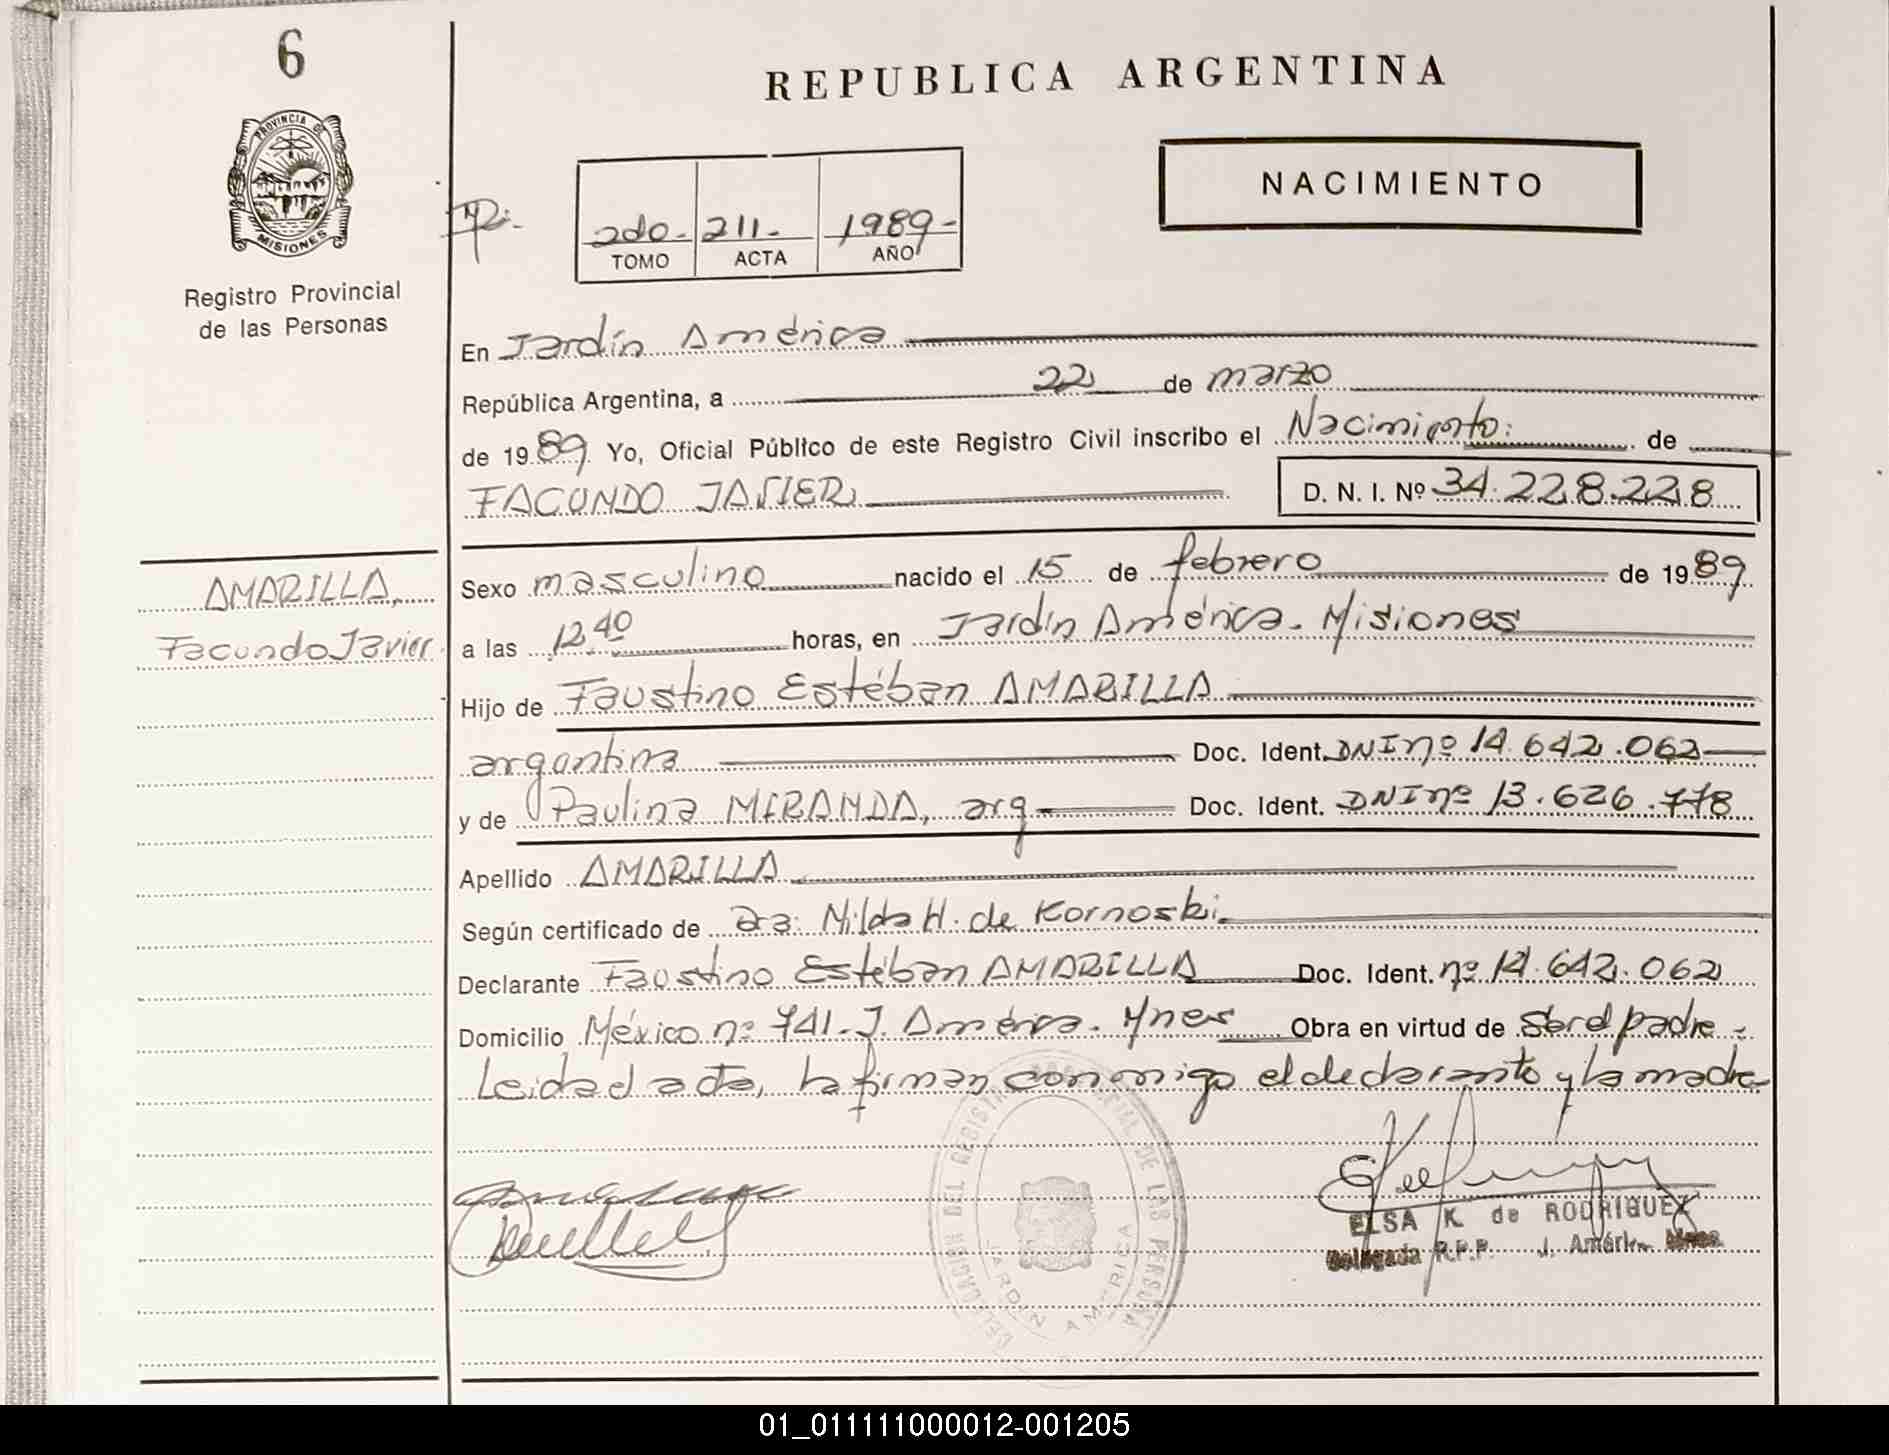 6
REPUBLICA ARGENTINA
PROVINCIA DE
MISIONES
Registro Provincial
de las Personas
NACIMIENTO
2do.- 211.- 1989-
TOMO ACTA AÑO
En Jardín América
República Argentina, a 22 de marzo
de 1989. Yo, Oficial Público de este Registro Civil inscribo el Nacimiento: de
FACUNDO JAVIER D. N. I. Nº 34.228.228
AMARILLA,
Facundo Javier
Sexo masculino nacido el 15 de febrero de 1989
a las 12,40 horas, en Jardín América. Misiones
Hijo de Faustino Estéban AMARILLA
argentina Doc. Ident. DNI nº 14.642.062
y de Paulina MIRANDA, arg. Doc. Ident. DNI nº 13.626.778
Apellido AMARILLA
Según certificado de Dra: Nilda H. de Kornoski.
Declarante Faustino Estéban AMARILLA Doc. Ident. nº 14.642.062
Domicilio México nº 741- J. América. Mnes Obra en virtud de ser el padre.-
Leida el acta, la firman conmigo el declarante y la madre
DELEGACION DEL REGISTRO PROVINCIAL DE LAS PERSONAS
JARDIN AMERICA
ELSA K. de RODRIGUEZ
Delegada R.P.P. J. América Mnes.
01_011111000012-001205